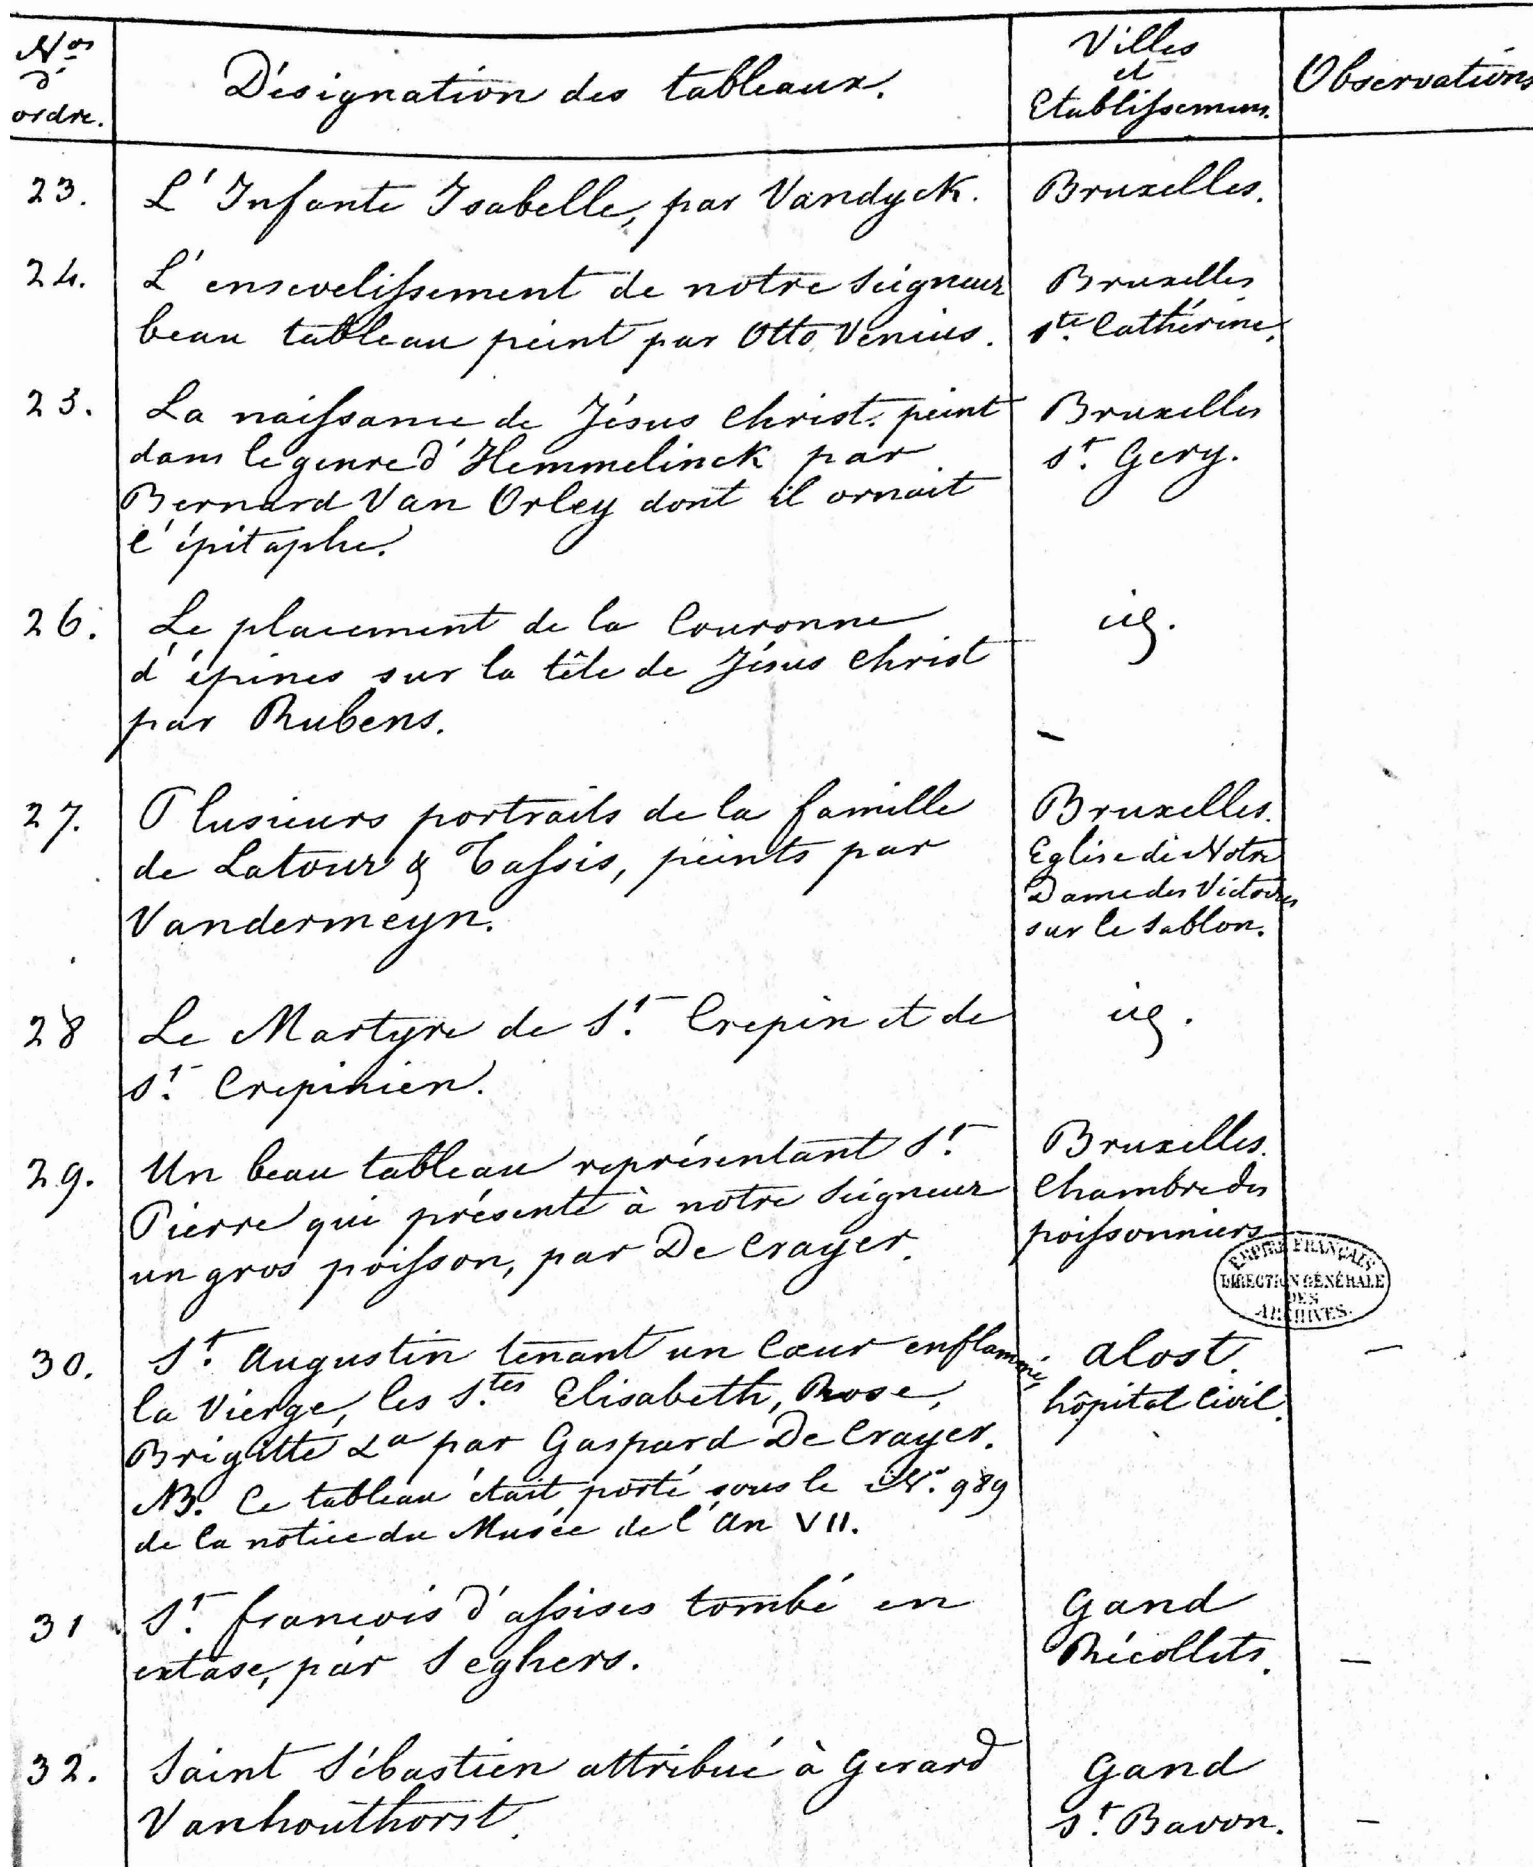 Nos
d'
ordre.
Désignation des tableaux.
Villes
et
Etablissemens.
Observations
23.
L'Infante Isabelle, par Vandyck.
Bruxelles.
24.
L'ensevelissement de notre Seigneur
beau tableau peint par Otto Venius.
Bruxelles
Ste. Cathérine.
25.
La naissance de Jésus Christ. peint
dans le genre d'Hemmelinck par
Bernard Van Orley dont il ornait
l'épitaphe.
Bruxelles
St. Gery.
26.
Le placement de la Couronne
d'épines sur la tête de Jésus Christ
par Rubens.
id.
27.
Plusieurs portraits de la famille
de Latour & Tassis, peints par
Vandermeyn.
Bruxelles.
Eglise de Notre
Dame des Victoires
sur le Sablon.
28
Le Martyre de St. Crepin et de
St. Crepinien.
id.
29.
Un beau tableau représentant St.
Pierre qui présente à notre Seigneur
un gros poisson, par De Crayer.
Bruxelles.
Chambre des
poissonniers
EMPIRE FRANÇAIS
DIRECTION GÉNÉRALE
DES
ARCHIVES.
30.
St. Augustin tenant un Cœur enflammé,
la Vierge, les Stes. Elisabeth, Rose,
Brigitte &a par Gaspard De Crayer.
NB. Ce tableau était porté sous le No. 989
de la notice du Musée de l'An VII.
Alost.
hôpital Civil.
—
31
St. francois d'assises tombé en
extase, par Seghers.
Gand
Récollets.
—
32.
Saint Sébastien attribué à Gerard
Vanhouthorst.
Gand
St. Bavon.
—